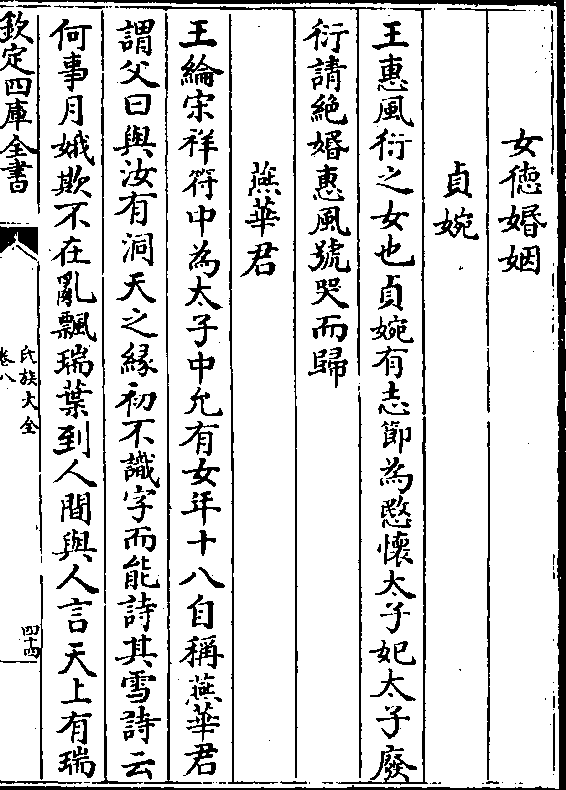 女徳婚姻
貞婉
王惠風衍之女也貞婉有志節為愍懷太子妃太子廢
衍請絶婚惠風號哭而歸
燕華君
王綸宋祥符中為太子中允有女年十八自稱燕華君
謂父曰與汝有洞天之縁初不識字而能詩其雪詩云
何事月娥欺不在亂飄瑞葉到人間與人言天上有瑞
欽定四庫全書
氏族大全
卷八
四十四